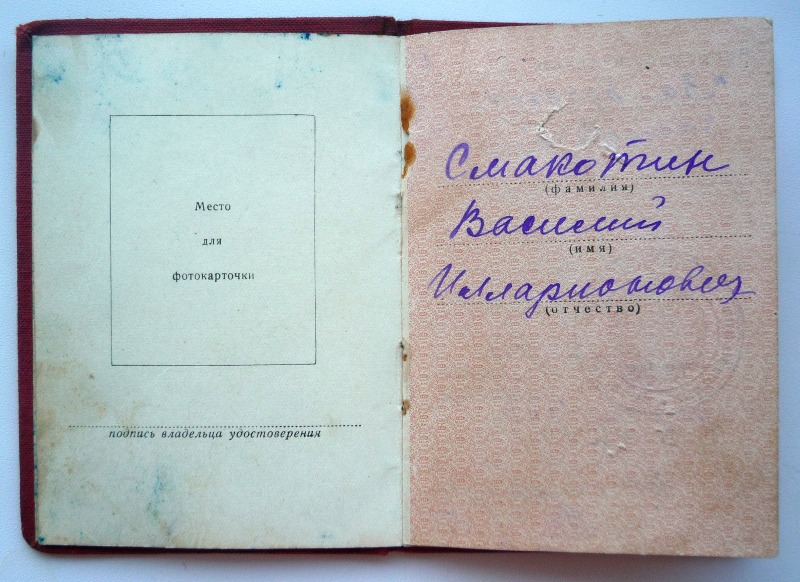 Место
для
фотокарточки
подпись владельца удостоверения
Смакотин
(фамилия)
Василий
(имя)
Илларионович
(отчество)